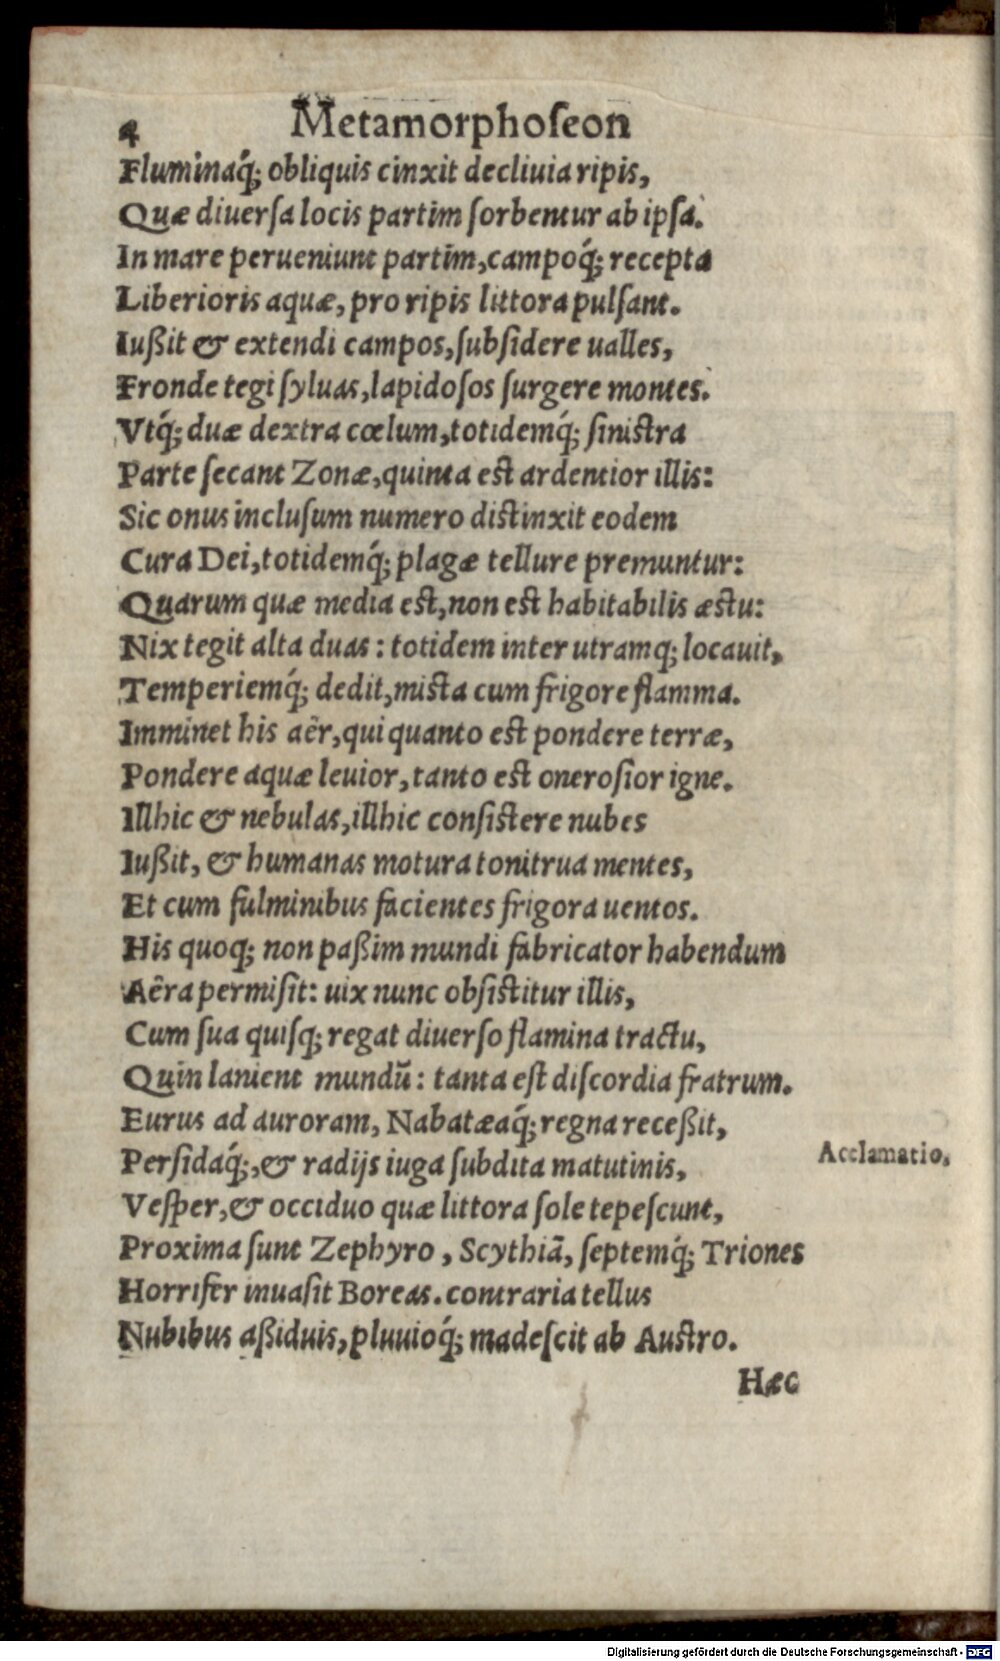 4 Metamorphoſeon
Fluminaq́; obliquis cinxit decliuia ripis,
Quæ diuerſa locis partim ſorbentur ab ipſa.
In mare perueniunt partim, campoq́; recepta
Liberioris aquæ, pro ripis littora pulſant.
Iußit & extendi campos, ſubſidere ualles,
Fronde tegi ſyluas, lapidoſos ſurgere montes.
Vtq́; duæ dextra cœlum, totidemq́; siniſtra
Parte ſecant Zonæ, quinta eſt ardentior illis:
Sic onus incluſum numero diſtinxit eodem
Cura Dei, totidemq́; plagæ tellure premuntur:
Quarum quæ media eſt, non eſt habitabilis æſtu:
Nix tegit alta duas: totidem inter utramq; locauit,
Temperiemq́; dedit, miſta cum frigore flamma.
Imminet his aër, qui quanto eſt pondere terræ,
Pondere aquæ leuior, tanto eſt oneroſior igne.
Illhic & nebulas, illhic conſiſtere nubes
Iußit, & humanas motura tonitrua mentes,
Et cum fulminibus facientes frigora uentos.
His quoq; non paßim mundi fabricator habendum
Aëra permiſit: uix nunc obſiſtitur illis,
Cum ſua quiſq; regat diuerſo flamina tractu,
Quin lanient mundũ: tanta eſt diſcordia fratrum.
Eurus ad auroram, Nabatæaq́; regna receßit,
Perſidaq́;, & radijs iuga ſubdita matutinis,
Acclamatio,
Veſper, & occiduo quæ littora ſole tepeſcunt,
Proxima ſunt Zephyro, Scythiã, ſeptemq́; Triones
Horrifer inuaſit Boreas. contraria tellus
Nubibus aßiduis, pluuioq́; madeſcit ab Auſtro.
Hæc
Digitalisierung gefördert durch die Deutsche Forschungsgemeinschaft - DFG